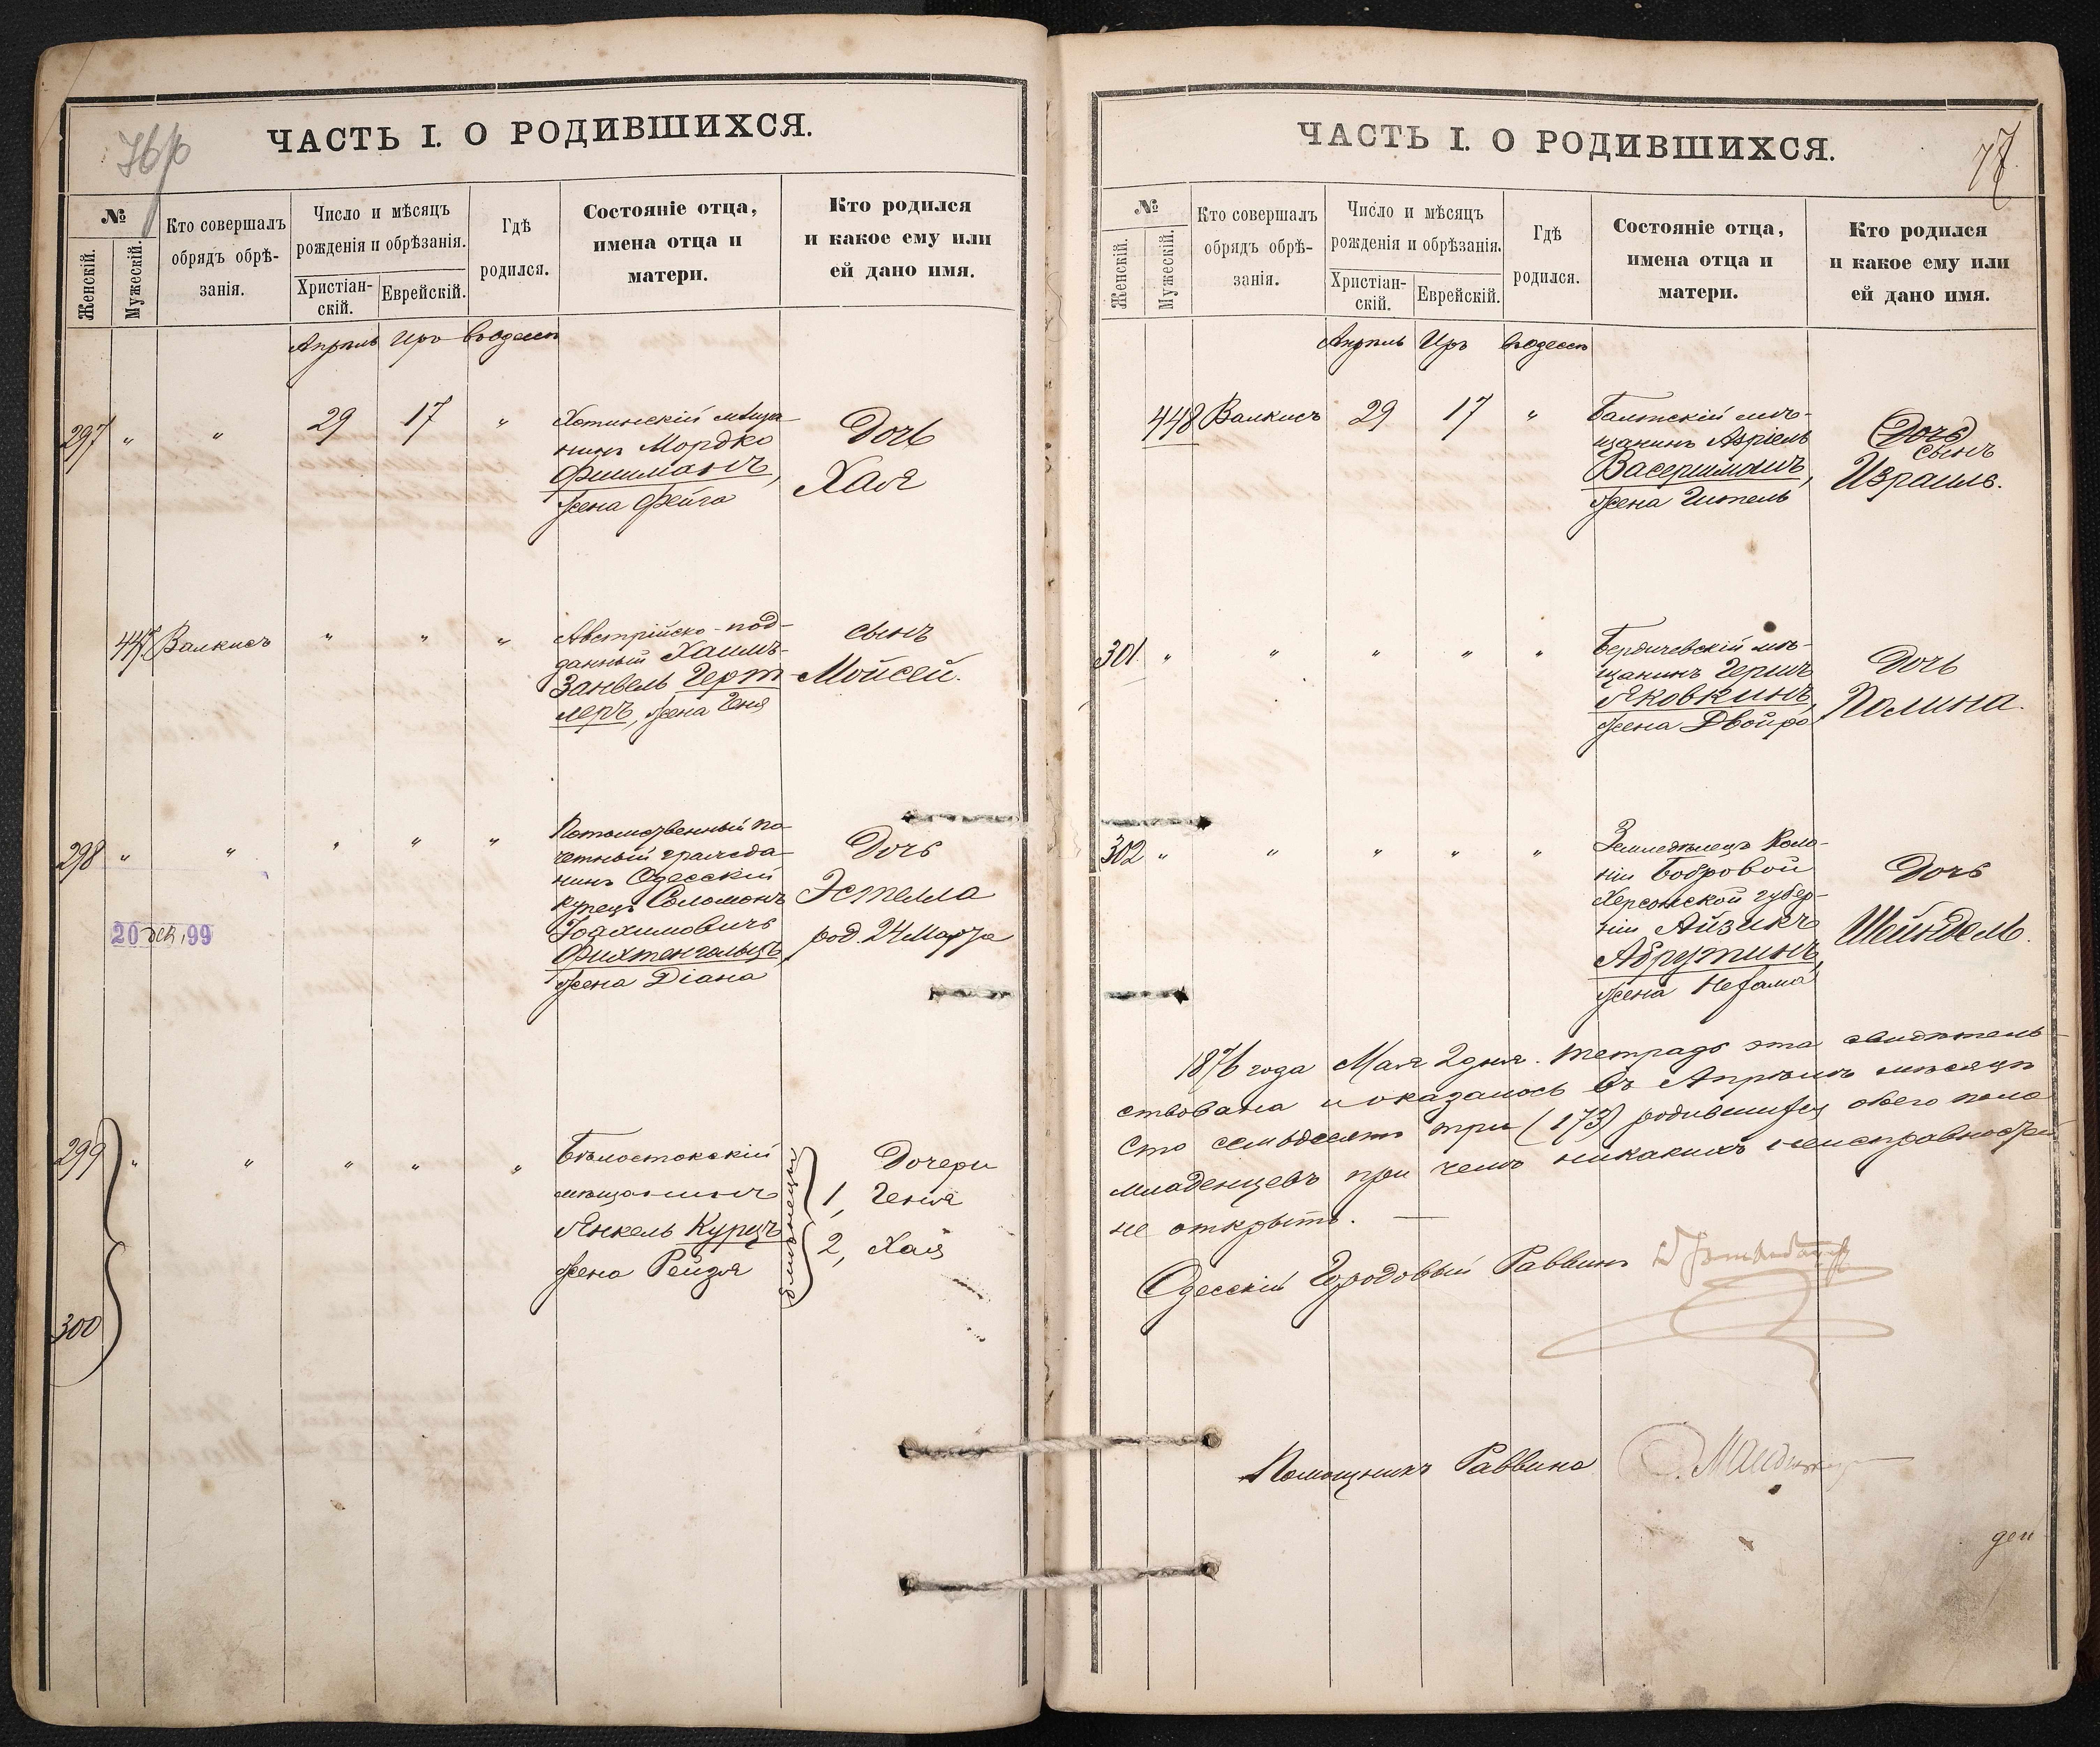 76
ЧАСТЬ I. О РОДИВШИХСЯ.
№
Женскій.
Мужескій.
Кто совершалъ
обрядъ обрѣ-
занія.
Число и мѣсяцъ
рожденія и обрѣзанія.
Христіан-
скій.
Еврейскій.
Гдѣ
родился.
Состояніе отца,
имена отца и
матери.
Кто родился
и какое ему или
ей дано имя.
Апрѣль Иръ въ Одессѣ
297 " " 29 17 "
Хотинскій мѣща-
нинъ Мордко
Фишманъ,
жена Фейга
Дочь
Хая
447 Валкисъ " " "
Австрійско-под-
данный Хаимъ-
Занвель Герт-
леръ, жена Геня
сынъ
Мойсей.
298 " " " " "
Потомственный по-
четный гражда-
нинъ Одесскій
купецъ Соломонъ
Іоахимовичъ
Фихтенгольцъ,
жена Діана
Дочь
Эстелла
род. 24 Марта
20 дек. 99
299 " " " " "
300
Бѣлостокскій
мѣщанинъ
Янкель Курцъ
жена Рейзя
близнецы
Дочери
1, Геня
2, Хая
77
ЧАСТЬ I. О РОДИВШИХСЯ.
№
Женскій.
Мужескій.
Кто совершалъ
обрядъ обрѣ-
занія.
Число и мѣсяцъ
рожденія и обрѣзанія.
Христіан-
скій.
Еврейскій.
Гдѣ
родился.
Состояніе отца,
имена отца и
матери.
Кто родился
и какое ему или
ей дано имя.
Апрѣль Иръ въ Одессѣ
448 Валкисъ 29 17 "
Балтскій мѣ-
щанинъ Азріель
Васерманъ,
жена Гитель
(Дочь)
сынъ
Израиль.
301 " " " " "
Бердичевскій мѣ-
щанинъ Гершъ
Яковкинъ,
жена Двойра
Дочь
Полина.
302 " " " " "
Земледѣлецъ Коло-
ніи Бобровой
Херсонской губер-
ніи Айзикъ
Абрутинъ,
жена Нехама
Дочь
Шейндель.
1876 года Мая 2 дня. Тетрадь эта свидѣтель-
ствована и оказалось въ Апрѣлѣ мѣсяцѣ
Сто семьдесятъ три (173) родившихся обоего пола
младенцевъ при чемъ никакихъ неисправностей
не открыто.
Одесскій Городовый Раввинъ
Помощникъ Раввина